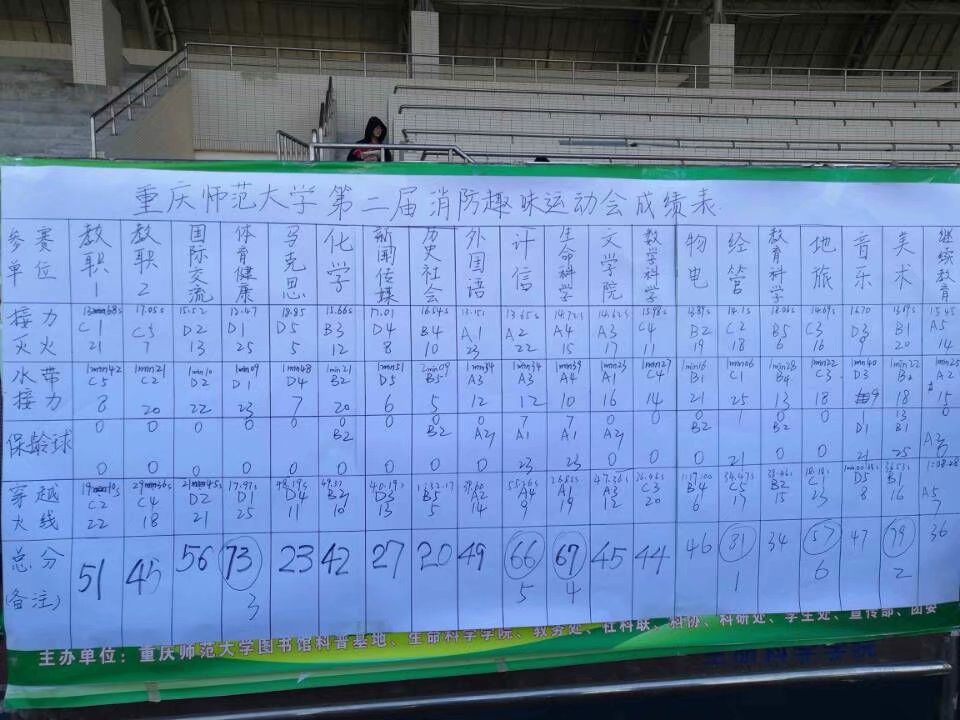 重庆师范大学第二届消防趣味运动会成绩表
参赛单位 教职1 教职2 国际交流 体育健康 马克思 化学 新闻传媒 历史社会 外国语 计信 生命科学 文学院 数学科学 物电 经管 教育科学 地旅 音乐 美术 继续教育
接力 17.05s 15.52 18.85 15.66s 17.01 16.54s 13.65s 14.72s 14.62s
灭火 C1 C3 D2 D1 D5 B3 D4 B4 A1 A2 A4 A3 C4 B2 C2 B5 C3 D3 B1 A5
21 7 13 25 5 12 8 10 23 22 15 17 11 19 18 6 16 9 20 14
水带 1min42 1min21 1min10 1min09 1min48 1min21 1min51 2min09 1min34 1min34 1min39 1min23 1min27 1min16 1min06 1min28 1min22 1min40 1min22 1min25
接力 C5 C2 D2 D1 D4 B2 D5 B5 A3 A3 A4 A1 C4 B1 C1 B4 C3 D3 B2 A2
8 20 22 23 7 20 6 5 12 12 10 16 14 21 25 13 18 9 18 15
保龄球 0 0 0 0 0 0 0 0 0 7 7 0 0 0 1 0 0 0 13
B2 B2 A2 A1 A1 B2 B2 D1 B1
0 0 0 0 0 0 0 0 0 23 23 0 0 0 21 0 0 21 25 0
穿越 29min36s 21min45s 17.97s 48.19s 40.19s 1:32.17 47.36s
火线 C2 C4 D2 D1 D4 B2 D3 B5 A2 A4 A1 A3 C3 B4 C5 B2 D5 B1 A5
22 18 21 25 11 10 13 5 14 9 19 12 20 6 17 15 23 8 16 7
总分 51 45 56 73 23 42 27 20 49 66 67 45 44 46 81 34 57 47 79 36
(备注) 3 5 4 1 6 2
主办单位：重庆师范大学图书馆科普基地、生命科学学院、教务处、社科联、科协、科研处、学生处、宣传部、团委
生命科学学院